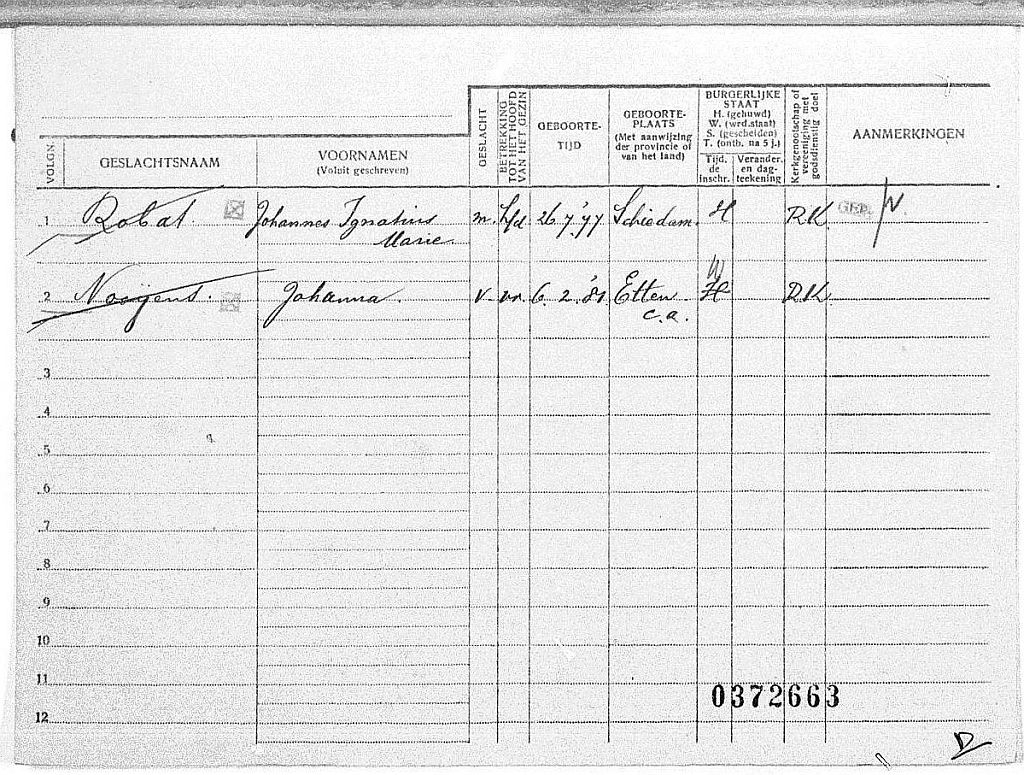 VOLGN.
GESLACHTSNAAM
VOORNAMEN
(Voluit geschreven)
GESLACHT
BETREKKING
TOT HET HOOFD
VAN HET GEZIN
GEBOORTE-
TIJD
GEBOORTE-
PLAATS
(Met aanwijzing
der provincie of
van het land)
BURGERLIJKE
STAAT
H. (gehuwd)
W. (wed.staat)
S. (gescheiden)
T. (ontb. na 5 j.)
Tijd.
inschr.
Verander.
en dag-
teekening
Kerkgenootschap of
vereeniging met
godsdienstig doel
AANMERKINGEN
1 Robat Johannes Ignatius m. hfd. 26.7.'77 Schiedam. H R.K. GEB. N
Marie
W
2 Nooijens. Johanna. v. vr. 6.2.'81 Etten H R.K.
c.a.
3
4
5
6
7
8
9
10
11
0372663
12
D